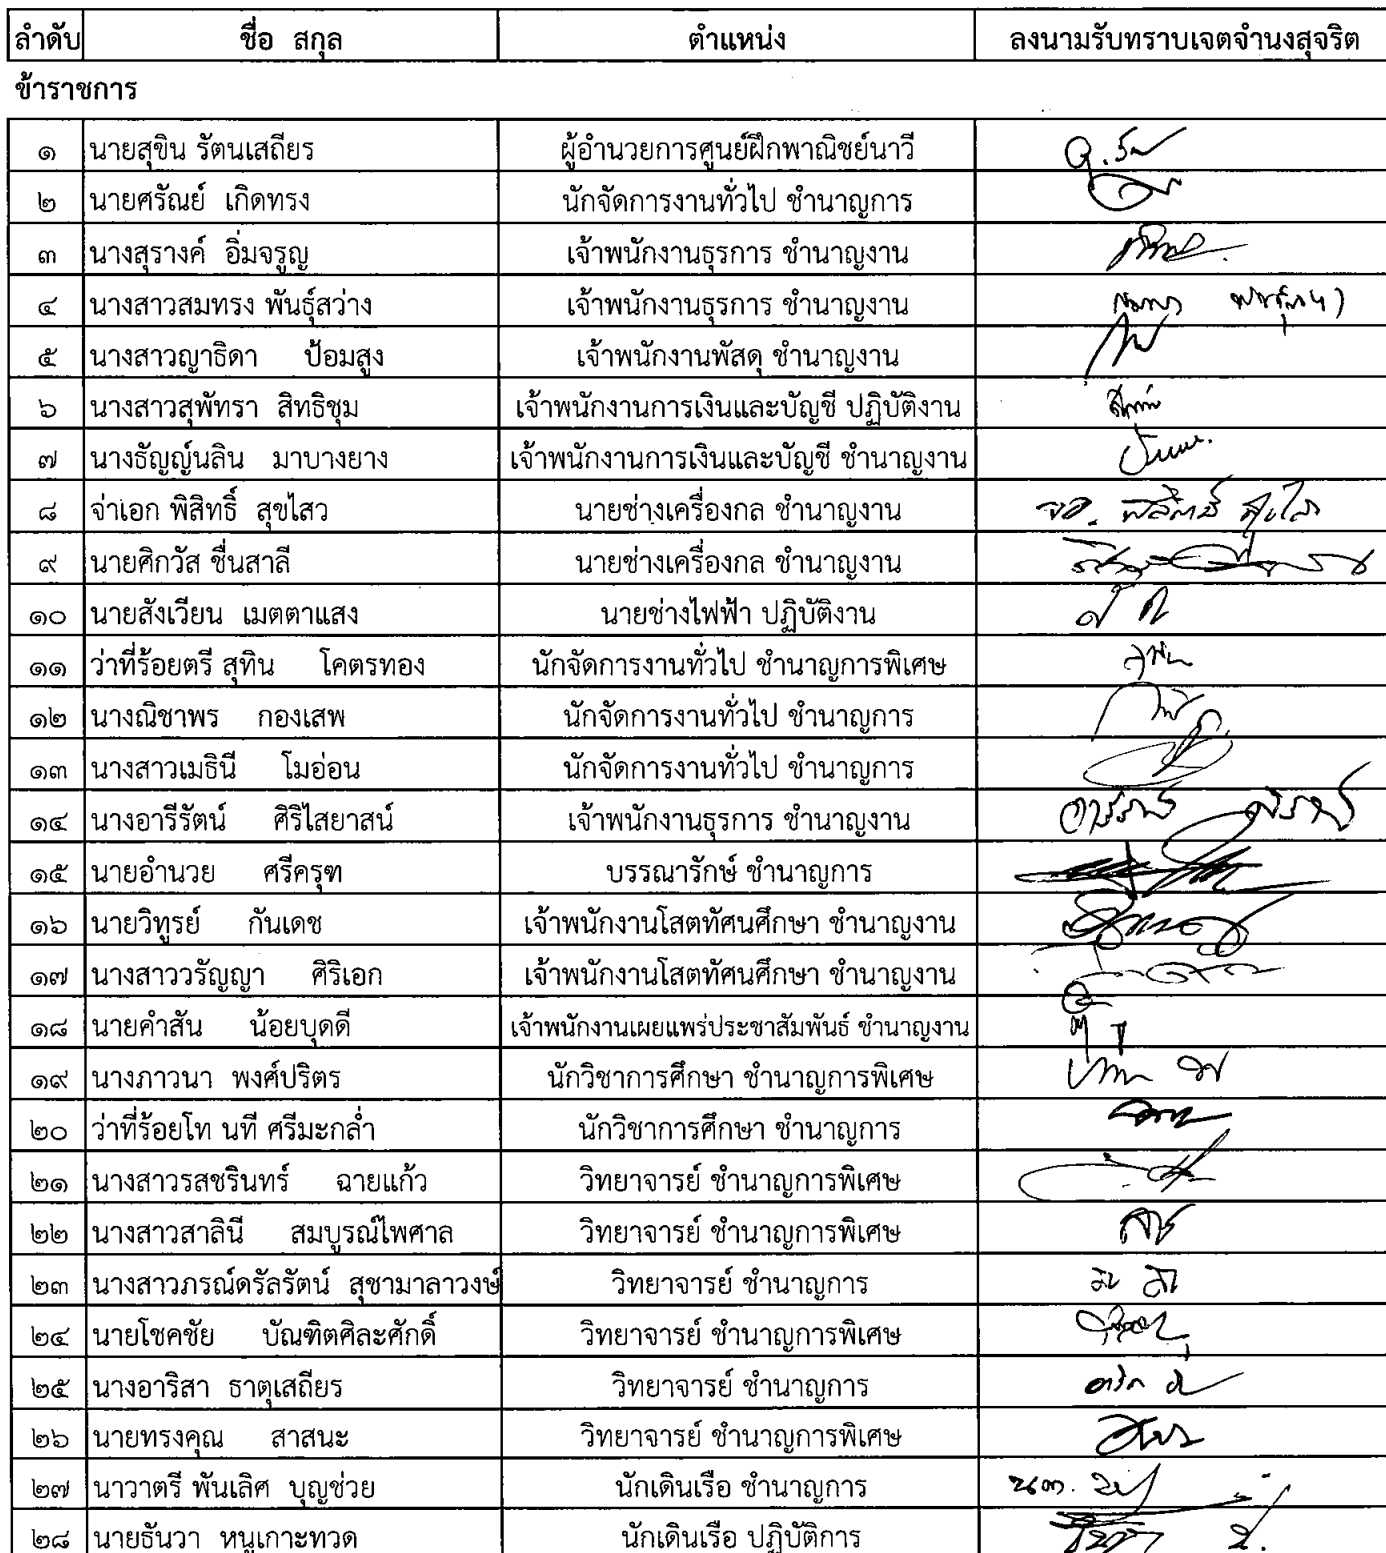 ลำดับ ชื่อ สกุล ตำแหน่ง ลงนามรับทราบเจตจำนงสุจริต
ข้าราชการ
๑ นายสุขิน รัตนเสถียร ผู้อำนวยการศูนย์ฝึกพาณิชย์นาวี
๒ นายศรัณย์ เกิดทรง นักจัดการงานทั่วไป ชำนาญการ
๓ นางสุรางค์ อิ่มจรูญ เจ้าพนักงานธุรการ ชำนาญงาน
๔ นางสาวสมทรง พันธุ์สว่าง เจ้าพนักงานธุรการ ชำนาญงาน
๕ นางสาวญาธิดา ป้อมสูง เจ้าพนักงานพัสดุ ชำนาญงาน
๖ นางสาวสุพัทรา สิทธิชุม เจ้าพนักงานการเงินและบัญชี ปฏิบัติงาน
๗ นางธัญญ์นลิน มาบางยาง เจ้าพนักงานการเงินและบัญชี ชำนาญงาน
๘ จ่าเอก พิสิทธิ์ สุขไสว นายช่างเครื่องกล ชำนาญงาน จอ. พิสิทธิ์ สุขไสว
๙ นายศิกวัส ชื่นสาลี นายช่างเครื่องกล ชำนาญงาน
๑๐ นายสังเวียน เมตตาแสง นายช่างไฟฟ้า ปฏิบัติงาน
๑๑ ว่าที่ร้อยตรี สุทิน โคตรทอง นักจัดการงานทั่วไป ชำนาญการพิเศษ
๑๒ นางณิชาพร กองเสพ นักจัดการงานทั่วไป ชำนาญการ
๑๓ นางสาวเมธินี โมอ่อน นักจัดการงานทั่วไป ชำนาญการ
๑๔ นางอารีรัตน์ ศิริไสยาสน์ เจ้าพนักงานธุรการ ชำนาญงาน
๑๕ นายอำนวย ศรีครุฑ บรรณารักษ์ ชำนาญการ
๑๖ นายวิทูรย์ กันเดช เจ้าพนักงานโสตทัศนศึกษา ชำนาญงาน
๑๗ นางสาววรัญญา ศิริเอก เจ้าพนักงานโสตทัศนศึกษา ชำนาญงาน
๑๘ นายคำสัน น้อยบุดดี เจ้าพนักงานเผยแพร่ประชาสัมพันธ์ ชำนาญงาน
๑๙ นางภาวนา พงศ์ปริตร นักวิชาการศึกษา ชำนาญการพิเศษ
๒๐ ว่าที่ร้อยโท นที ศรีมะกล่ำ นักวิชาการศึกษา ชำนาญการ
๒๑ นางสาวรสชรินทร์ ฉายแก้ว วิทยาจารย์ ชำนาญการพิเศษ
๒๒ นางสาวสาลินี สมบูรณ์ไพศาล วิทยาจารย์ ชำนาญการพิเศษ
๒๓ นางสาวภรณ์ดรัลรัตน์ สุชามาลาวงษ์ วิทยาจารย์ ชำนาญการ
๒๔ นายโชคชัย บัณฑิตศิละศักดิ์ วิทยาจารย์ ชำนาญการพิเศษ
๒๕ นางอาริสา ธาตุเสถียร วิทยาจารย์ ชำนาญการ
๒๖ นายทรงคุณ สาสนะ วิทยาจารย์ ชำนาญการพิเศษ
๒๗ นาวาตรี พันเลิศ บุญช่วย นักเดินเรือ ชำนาญการ
๒๘ นายธันวา หนูเกาะทวด นักเดินเรือ ปฏิบัติการ